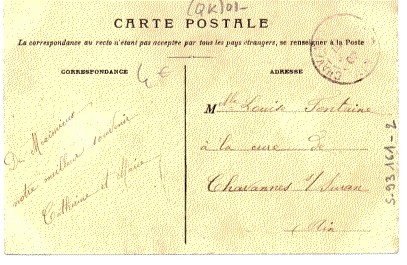 (QK)01-
CARTE POSTALE
La correspondance au recto n'étant pas acceptée par tous les pays étrangers, se renseigner à la Poste
CORRESPONDANCE
4 €
ADRESSE
De Meximieux
notre meilleur souvenir
Catherine et Marie !
Mlle Louise Fontaine
à la cure de
Chavannes s/ Suran
Ain
CHAV
S-93 161-2